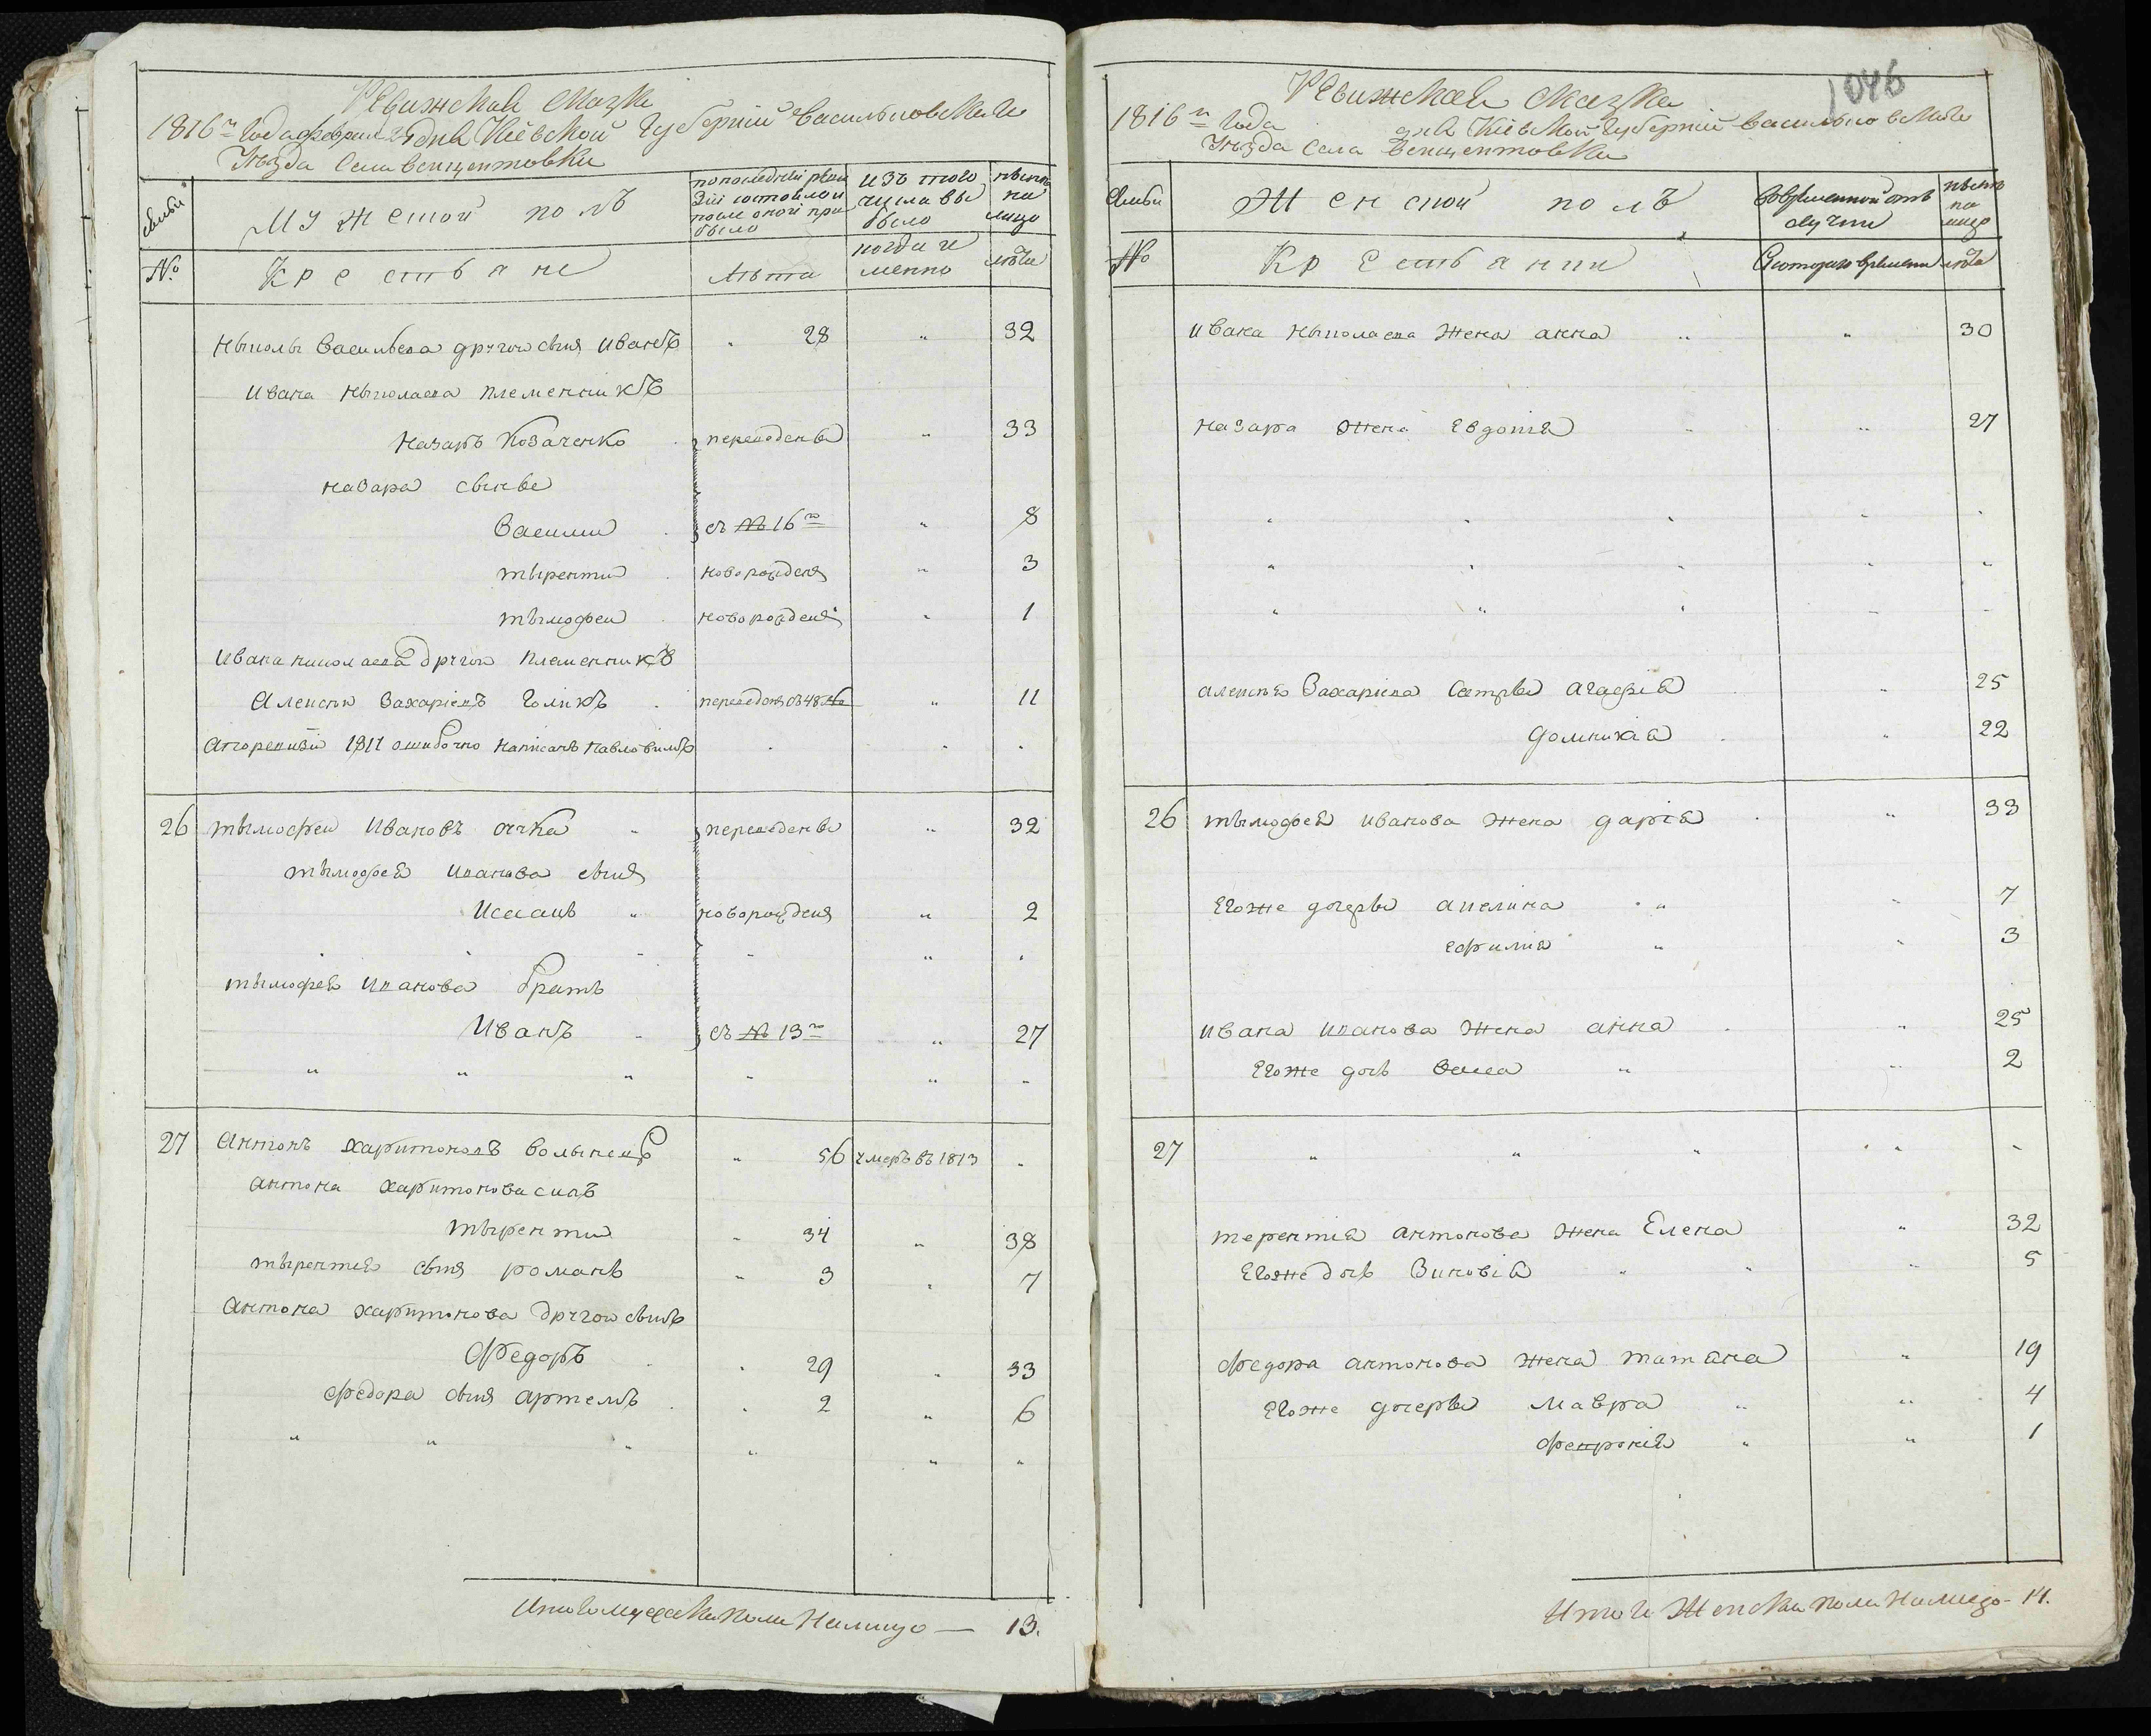 Ревижская сказка
1816го Года февраля дня Киевской Губернии Васильковскаго
Уезда Села Венцентовки
Семьи
Мужеской полъ
по последней реви
зии состояло и
после оной при
было
изъ того
числа вы
было
ныне
на
лицо
№
Крестьяне
Лета
когда и
менно
лета
Ныколы Васильева другои сынъ Иванъ " 28 " 32
Ивана Ныколаева племенникъ
Назаръ Козаченко переведены " 33
Назара сынве
Василии съ № 16го " 8
тырентии новорожденъ " 3
тымофеи новорожденъ " 1
Ивана николаева другои племенникъ
Алексеи Захаріевъ Голикъ переведенъ съ 48 № " 11
а по ревизіи 1811 ошибочно написанъ Павловимъ
26 тымофеи Ивановъ переведены " 32
тымофея Иванова сынъ
Исаацъ " новорожденъ " 2
тымофея Иванова братъ
Иванъ съ № 13го " 27
27 Антонъ харитоновъ волынецъ " 56 умеръ въ 1813
антона харитонова синъ
тырентии " 34 " 38
тырентия сынъ романъ " 3 " 7
Антона харитонова другои сынъ
Федоръ " 29 " 33
федора сынъ артемъ " 2 " 6
Итого мужеска пола Налицо — 13.
1046
Ревижская сказка
1816го Года дня Киевской Губернии Васильковскаго
Уезда Села Венцентовки
Семьи
Женской полъ
Во временной отъ
лучки
ныне
на
лицо
№
Крестьянки
С которого времени
лета
Ивана Ныколаева жена анна " " 30
Назара жена Евдокія " " 27
алексея Захаріева сестры агафія " 25
домникія " 22
26 тымофея Иванова жена дарія " 33
Егоже дочеры акилина " 7
ефимія " 3
Ивана Иванова жена анна " 25
Егоже дочь васса " 2
27
терентія антонова жена Елена " 32
Егоже дочь Зиновія " 5
федора антонова жена татяна " 19
Егоже дочеры мавра " 4
февронія " 1
Итого Женска пола Налицо - 14.